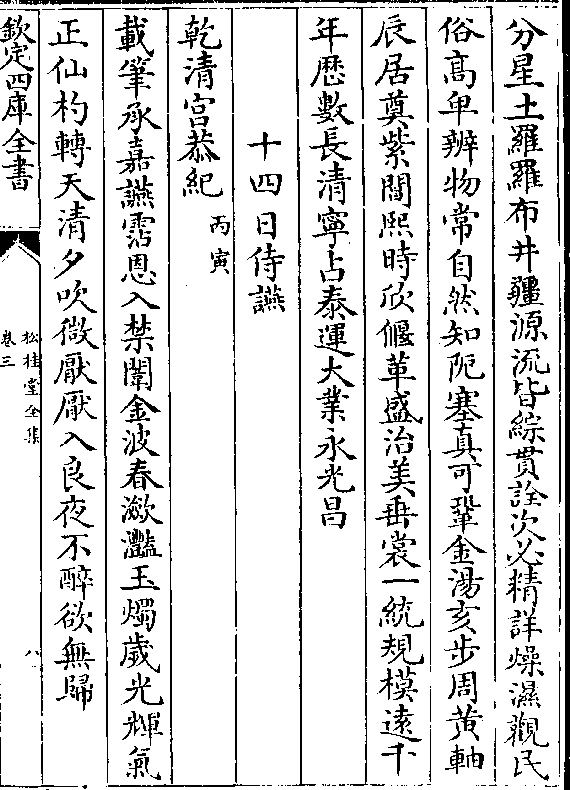 分星土羅羅布井疆源流皆綜貫詮次必精詳燥濕觀民
俗髙卑辨物常自然知阨塞真可鞏金湯亥步周黄軸
辰居奠紫閶熙時欣偃革盛治美垂裳一統規模遠千
年歴數長清寧占泰運大業永光昌
十四日侍讌
乾清宫恭紀 丙寅
載筆承嘉讌霑恩入禁闈金波春瀲灧玉燭歲光輝氣
正仙杓轉天清夕吹微厭厭入良夜不醉欲無歸
欽定四庫全書
松桂堂全集
卷三
八